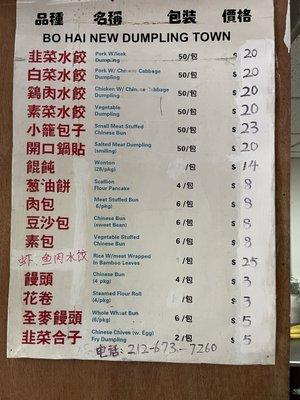 品種 名稱 包裝 價格
BO HAI NEW DUMPLING TOWN
韭菜水餃 Pork W/leek Dumpling 50/包 $ 20
白菜水餃 Pork W/ Chinese Cabbage Dumpling 50/包 $ 20
鷄肉水餃 Chicken W/ Chinese Cabbage Dumpling 50/包 $ 20
素菜水餃 Vegetable Dumpling 50/包 $ 20
小籠包子 Small Meat Stuffed Chinese Bun 50/包 $ 23
開口鍋貼 Salted Meat Dumpling (smiling) 50/包 $ 20
餛飩 Wonton (28/pkg) /包 $ 14
葱油餅 Scallion Flour Pancake 4 /包 $ 8
肉包 Meat Stuffed Bun 6/pkg) 6 /包 $ 8
豆沙包 Chinese Bun (sweet Bean) 6 /包 $ 8
素包 Vegetable Stuffed Chinese Bun 6 /包 $ 8
虾.鱼肉水饺 Rice W/meat Wrapped In Bamboo Leaves /包 $ 25
饅頭 Chinese Bun (4 /pkg) 4 /包 $ 3
花卷 Steamed Flour Roll (4 /pkg) /包 $ 3
全麥饅頭 Whole Wheat Bun (6/pkg) 6 /包 $ 5
韭菜合子 Chinese Chives (w. Egg) Fry Dumpling 2 /包 $ 5
电话: 212-673-7260